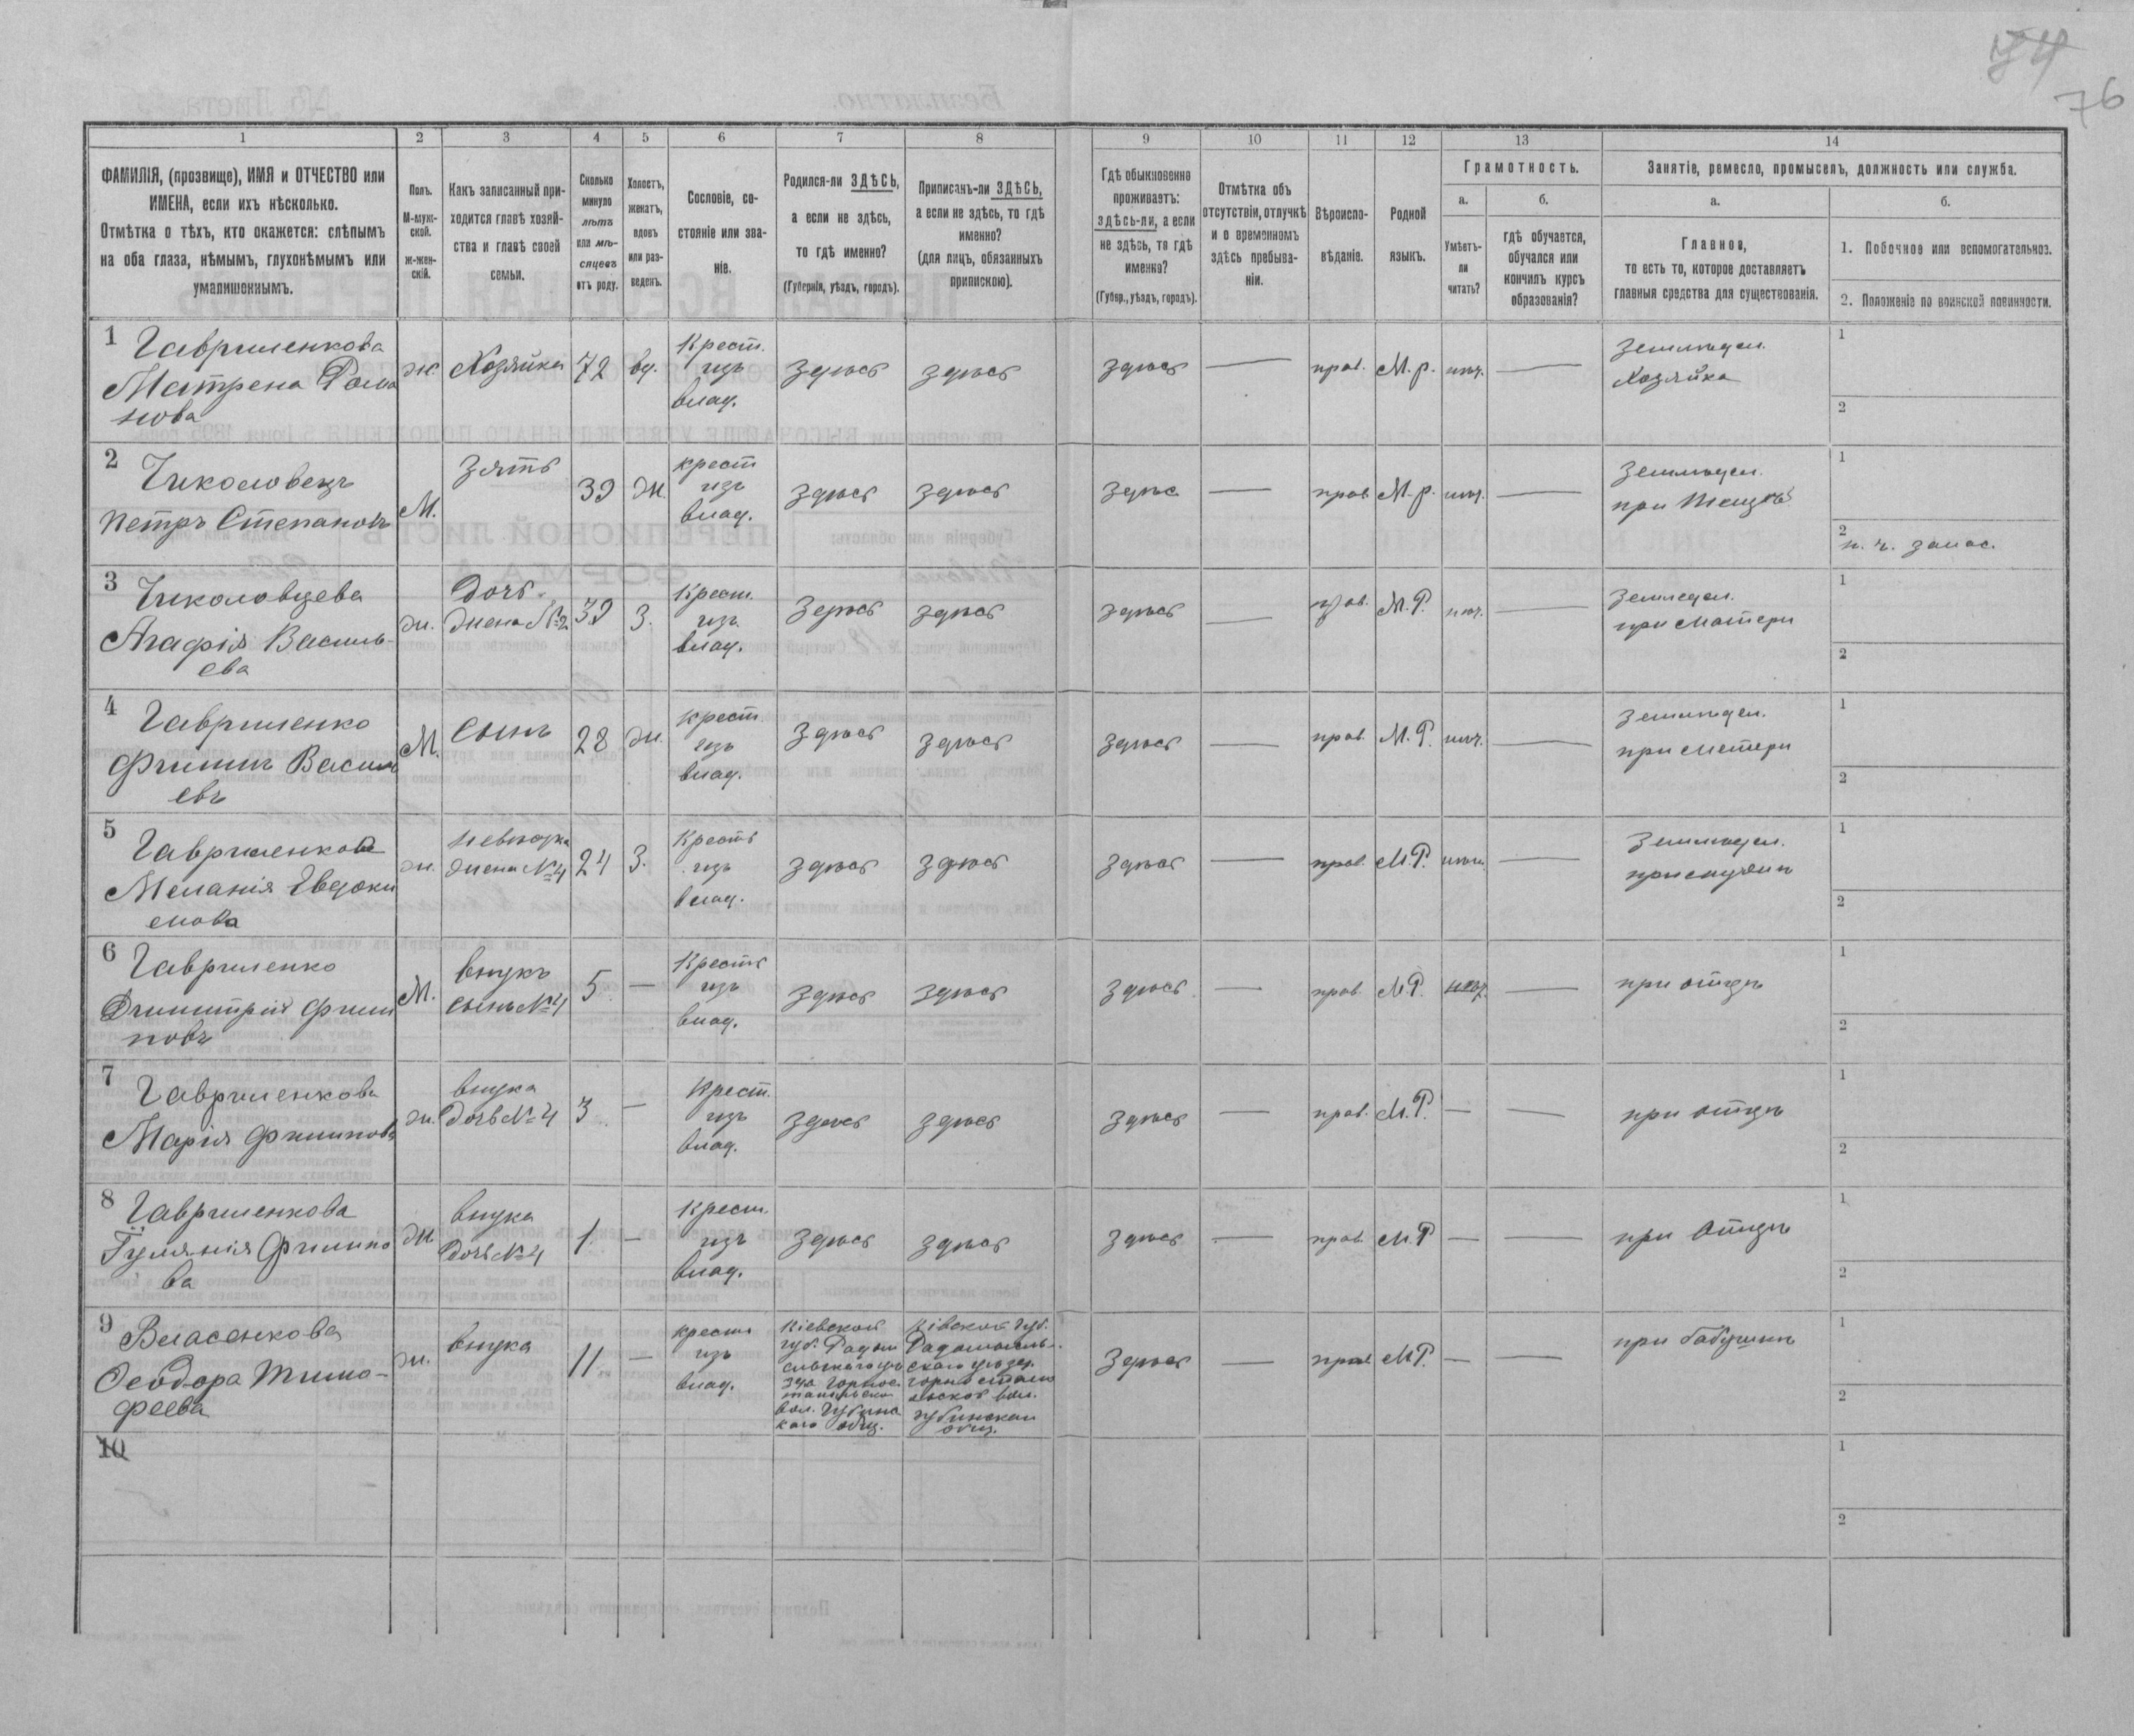 74
76
1 2 3 4 5 6 7 8 9 10 11 12 13 14
ФАМИЛІЯ, (прозвище), ИМЯ и ОТЧЕСТВО или
ИМЕНА, если ихъ нѣсколько.
Отмѣтка о тѣхъ, кто окажется: слѣпымъ
на оба глаза, нѣмымъ, глухонѣмымъ или
умалишеннымъ.
Полъ.
М-муж-
ской.
Ж-жен-
скій.
Какъ записанный при-
ходится главѣ хозяй-
ства и главѣ своей
семьи.
Сколько
минуло
лѣтъ
или мѣ-
сяцевъ
отъ роду.
Холостъ,
женатъ,
вдовъ
или раз-
веденъ.
Сословіе, со-
стояніе или зва-
ніе.
Родился-ли ЗДѢСЬ,
а если не здѣсь,
то гдѣ именно?
(Губернія, уѣздъ, городъ).
Приписанъ-ли ЗДѢСЬ,
а если не здѣсь, то гдѣ
именно?
(для лицъ, обязанныхъ
припискою).
Гдѣ обыкновенно
проживаетъ:
здѣсь-ли, а если
не здѣсь, то гдѣ
именно?
(Губер., уѣздъ, городъ).
Отмѣтка объ
отсутствіи, отлучкѣ
и о временномъ
здѣсь пребыва-
ніи.
Вѣроиспо-
вѣданіе.
Родной
языкъ.
Грамотность.
а.
Умѣетъ-
ли
читать?
б.
гдѣ обучается,
обучался или
кончилъ курсъ
образованія?
Занятіе, ремесло, промыселъ, должность или служба.
а.
Главное,
то есть то, которое доставляетъ
главныя средства для существованія.
б.
1. Побочное или вспомогательное.
2. Положеніе по воинской повинности.
1 Гавриленкова
Матрена Рома
нова
ж Хозяйка 72 вд.
Крест.
изъ
влад.
здѣсь здѣсь здѣсь — прав. М.р. —
Земледел.
Хозяйка
1
2
2 Чиколовецъ
Петръ Степановъ
М. Зять 39 ж.
крест
изъ
влад.
здѣсь здѣсь здѣс — прав. М.р. —
Земледел.
при
1
2 н. ч. запас.
3 Чиколовцева
Агафія Василь-
ева
ж.
Дочь.
жена №2
39 З.
Крест.
изъ
влад.
здѣсь здѣсь здѣсь — прав. М.Р. —
Земледел.
при Матери
1
2
4 Гавриленко
Филипъ Василь
евъ
М. Сынъ 28 ж.
крест.
изъ
влад.
здѣсь здѣсь здѣсь — прав. М.Р. —
Земледел.
при Метери
1
2
5 Гавриленкова
Меланія Евдоки
мова
ж.
Невѣстка
жена №4
24 З.
Кресть
изъ
влад.
здѣсь здѣсь здѣсь — прав. М.Р. —
Земледел.
при мужѣ
1
2
6 Гавриленко
Димитрій Фили
повъ
М.
внукъ
сынъ №4
5 —
Кресть
изъ
влад.
здѣсь здѣсь здѣсь — прав. М.Р. —
при отцѣ
1
2
7 Гавриленкова
Марія Филипова
ж.
внука
Дочь №4
3 —
Крест.
изъ
влад.
здѣсь здѣсь здѣсь — прав. М.Р. — —
при отцѣ
1
2
8 Гавриленкова
Гулянія Филипо
ва
ж.
внука
Дочь №4
1 —
Крест.
изъ
влад.
здѣсь здѣсь здѣсь — прав. М.Р — —
при Отцѣ
1
2
9 Власенкова
Феодора Тимо-
феева
ж. внука 11 —
крест
изъ
влад.
Кіевской
губ. Радом
сльскаго уѣ
зда Горнос
тайпьско
вол. Губинс
каго общ.
Кіевской губ.
Радомысль-
скаго уѣзд.
горностай
ольской вол.
губинскаи
общ.
здѣсь — прав. М.Р. — —
при бабушкѣ
1
2
10
1
2